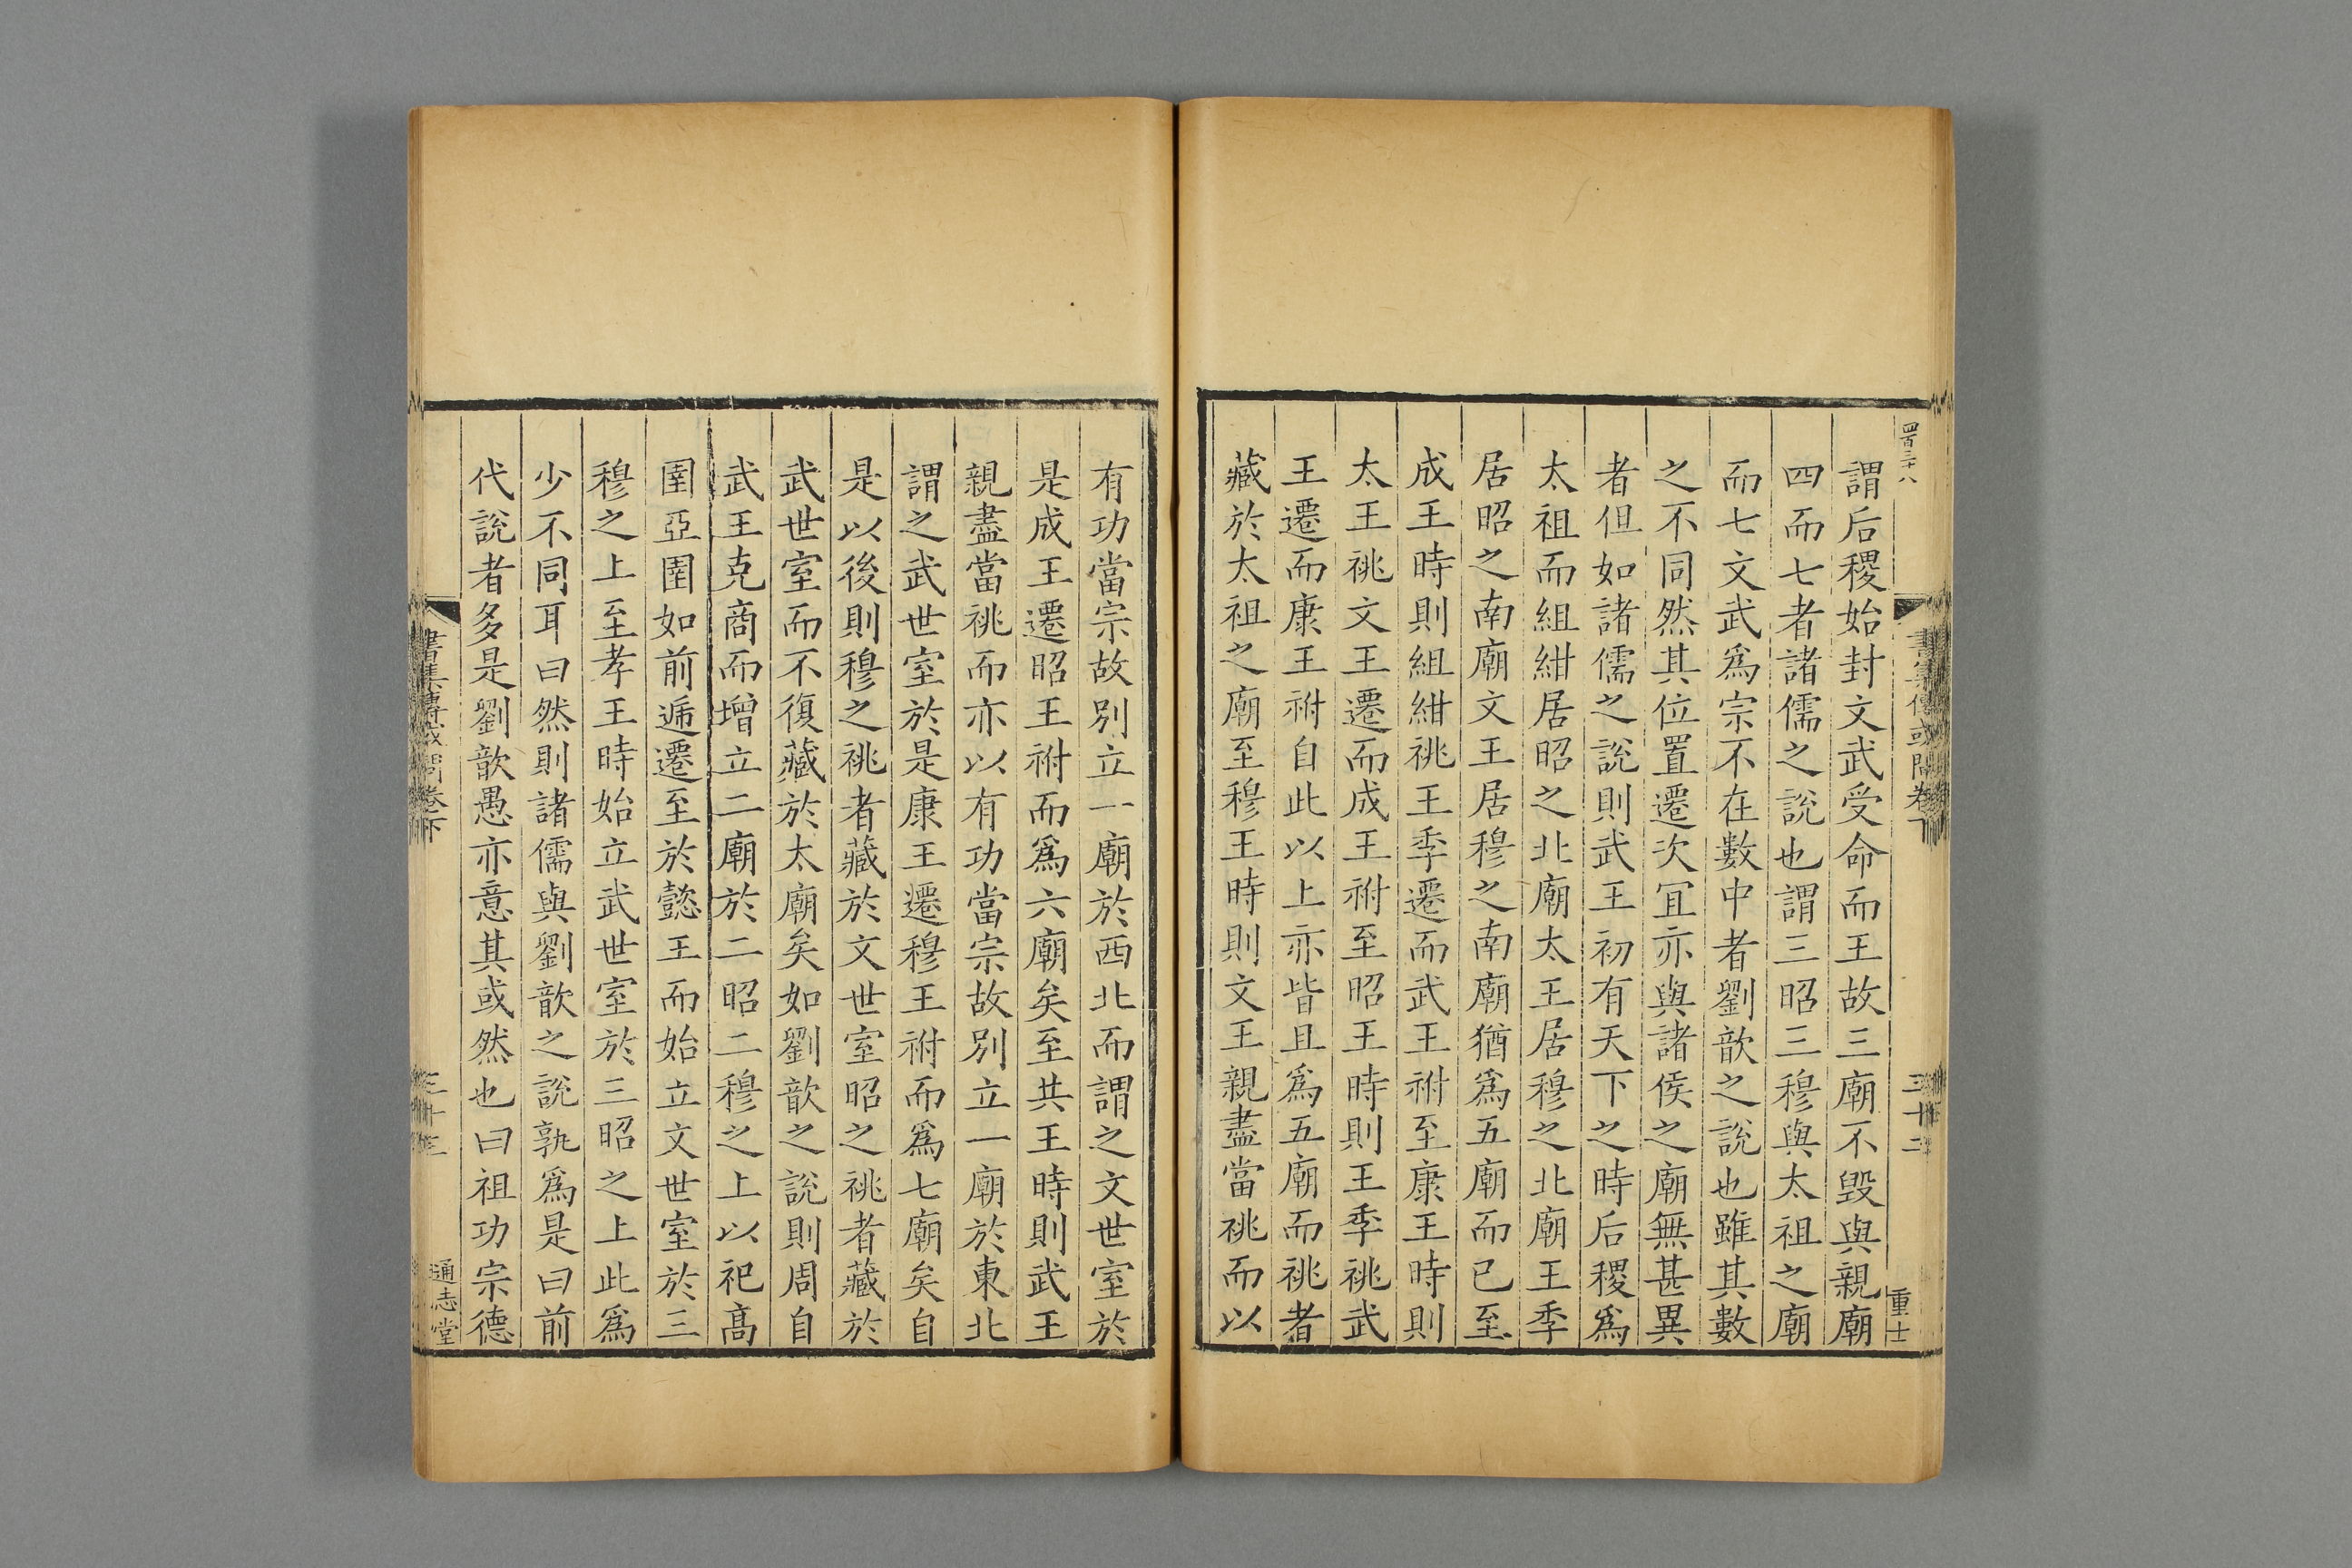 四百三十八
謂后稷始封文武受命而王故三廟不毀與親廟
四而七者諸儒之說也謂三昭三穆與太祖之廟
而七文武爲宗不在數中者劉歆之說也雖其數
之不同然其位置遷次宜亦與諸侯之廟無甚異
者但如諸儒之說則武王初有天下之時后稷爲
太祖而組紺居昭之北廟太王居穆之北廟王季
居昭之南廟文王居穆之南廟猶爲五廟而已至
成王時則組紺祧王季遷而武王祔至康王時則
太王祧文王遷而成王祔至昭王時則王季祧武
王遷而康王祔自此以上亦皆且爲五廟而祧者
藏於太祖之廟至穆王時則文王親盡當祧而以
書集傳或問卷下
三十二
重士
有功當宗故別立一廟於西北而謂之文世室於
是成王遷昭王祔而爲六廟矣至共王時則武王
親盡當祧而亦以有功當宗故別立一廟於東北
謂之武世室於是康王遷穆王祔而爲七廟矣自
是以後則穆之祧者藏於文世室昭之祧者藏於
武世室而不復藏於太廟矣如劉歆之說則周自
武王克商而增立二廟於二昭二穆之上以祀高
圉亞圉如前遞遷至於懿王而始立文世室於三
穆之上至孝王時始立武世室於三昭之上此爲
少不同耳曰然則諸儒與劉歆之說孰爲是曰前
代說者多是劉歆愚亦意其或然也曰祖功宗德
書集傳或問卷下
三十三
通志堂